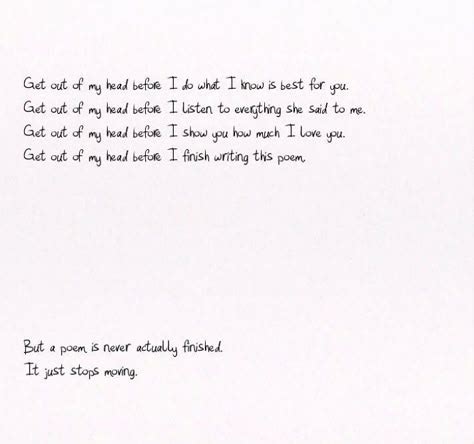 Get out of my head before I do what I know is best for you.
Get out of my head before I listen to everything she said to me.
Get out of my head before I show you how much I love you.
Get out of my head before I finish writing this poem.
But a poem is never actually finished.
It just stops moving.